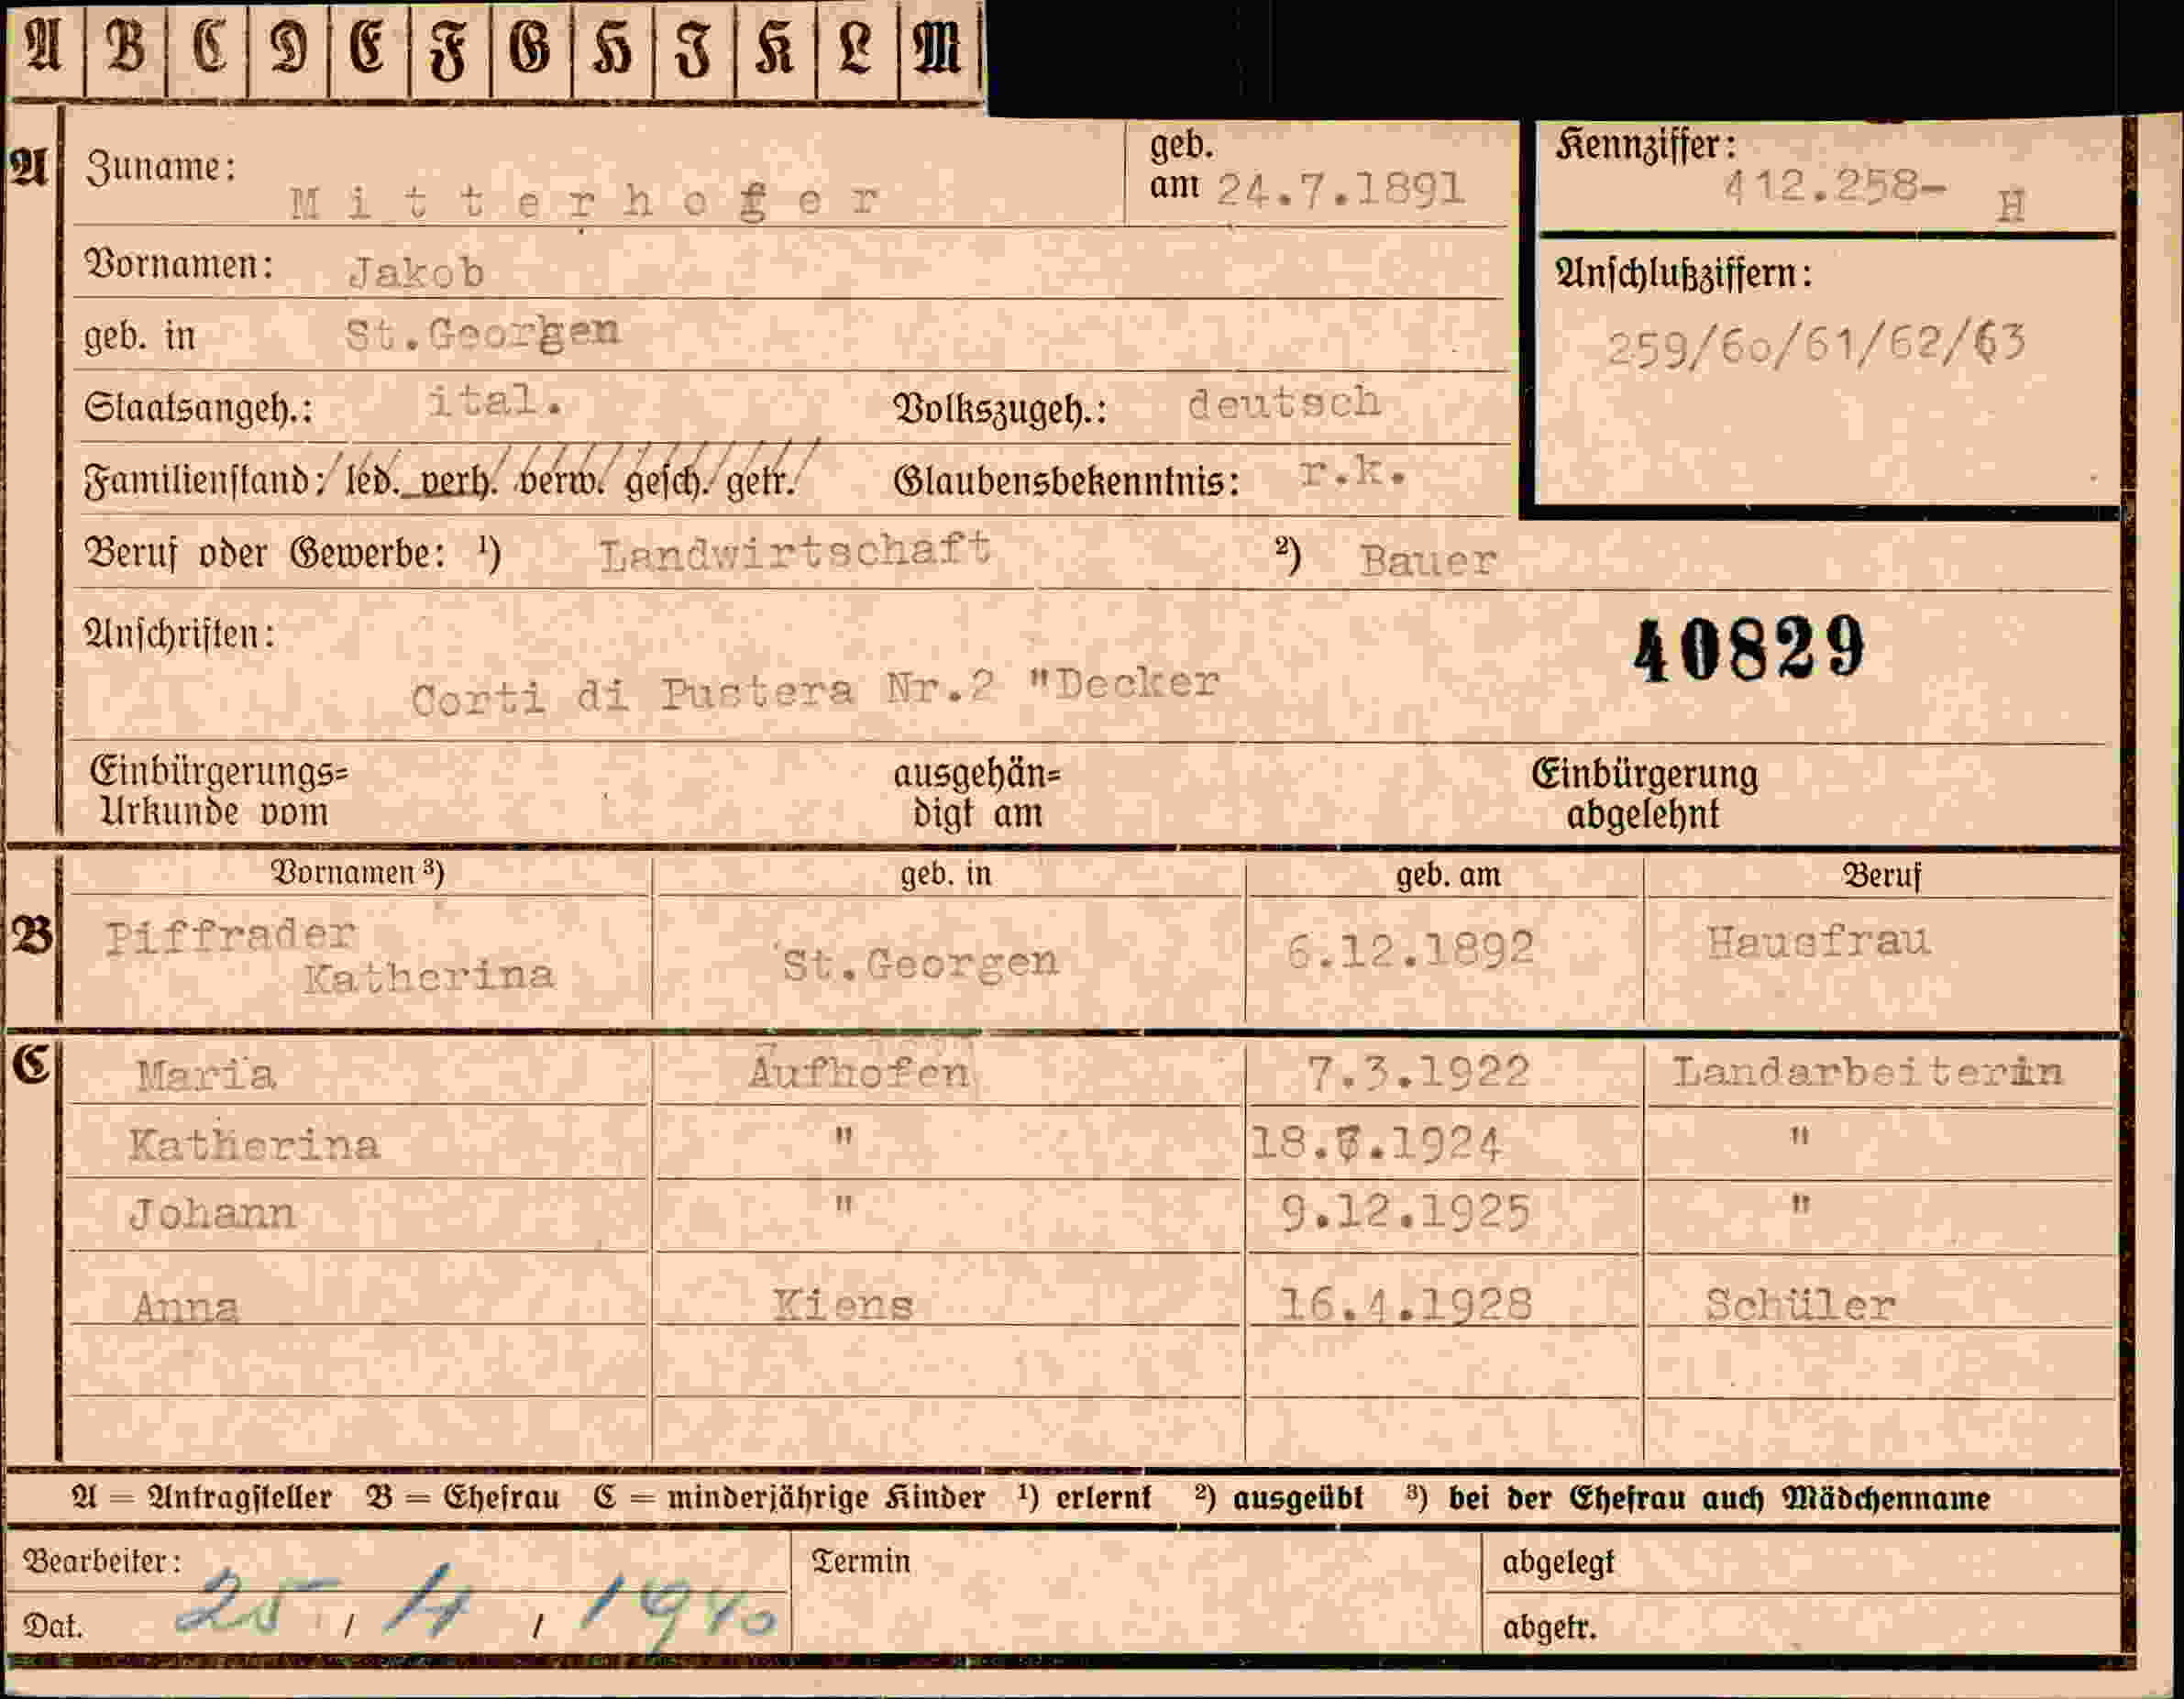 A B C D E F G H J K L M
A Zuname: Mitterhofer geb. am 24.7.1891
Kennziffer: 412.258- H
Vornamen: Jakob
Anschlußziffern:
geb. in St.Georgen
259/60/61/62/63
Staatsangeh.: ital. Volkszugeh.: deutsch
Familienstand: led. verh. verw. gesch. getr. Glaubensbekenntnis: r.k.
Beruf oder Gewerbe: ¹) Landwirtschaft ²) Bauer
Anschriften:
40829
Corti di Pustera Nr.2 "Decker
Einbürgerungs= ausgehän= Einbürgerung
Urkunde vom digt am abgelehnt
Vornamen ³) geb. in geb. am Beruf
B Piffrader
Katherina St.Georgen 6.12.1892 Hausfrau
C Maria Aufhofen 7.3.1922 Landarbeiterin
Katherina " 18. .1924 "
Johann " 9.12.1925 "
Anna Kiens 16.4.1928 Schüler
A = Antragsteller B = Ehefrau C = minderjährige Kinder ¹) erlernt ²) ausgeübt ³) bei der Ehefrau auch Mädchenname
Bearbeiter: Termin abgelegt
Dat. 25 / 4 / 1940 abgetr.